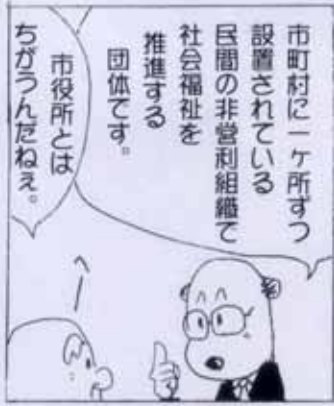 市町村に一ヶ所ずつ
設置されている
民間の非営利組織で
社会福祉を
推進する
団体です。
市役所とは
ちがうんだねぇ。
へー